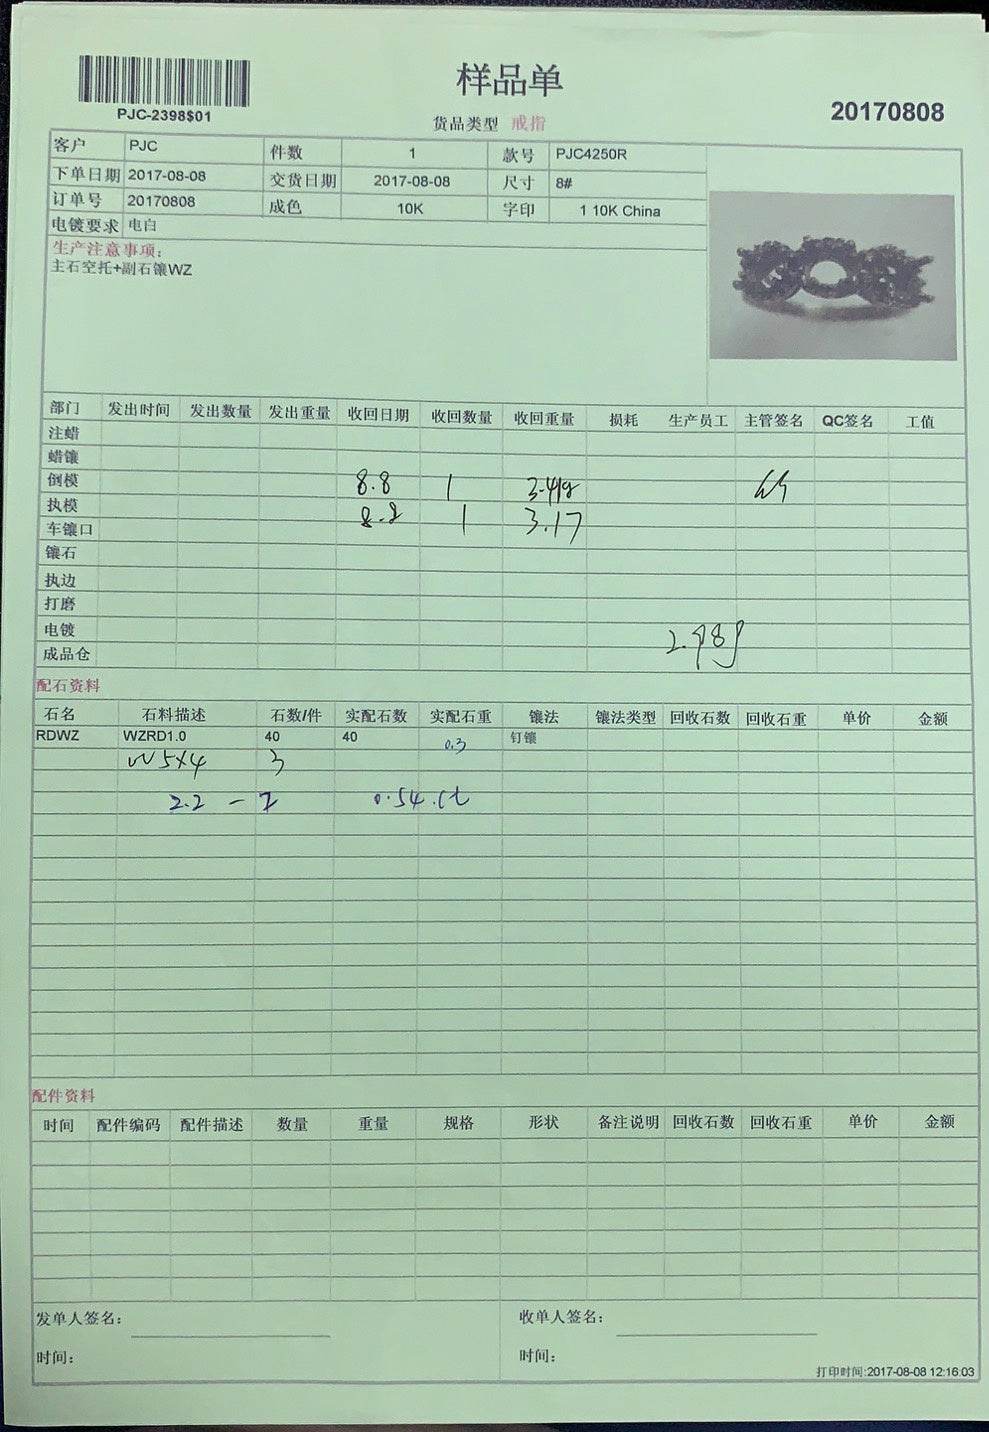 样品单
PJC-2398$01
货品类型 戒指
20170808
客户 PJC 件数 1 款号 PJC4250R
下单日期 2017-08-08 交货日期 2017-08-08 尺寸 8#
订单号 20170808 成色 10K 字印 1 10K China
电镀要求 电白
生产注意事项:
主石空托+副石镶WZ
部门 发出时间 发出数量 发出重量 收回日期 收回数量 收回重量 损耗 生产员工 主管签名 QC签名 工值
注蜡
蜡镶
倒模 8.8 1 3.41g
执模 8.8 1 3.17
车镶口
镶石
执边
打磨
电镀 2.98g
成品仓
配石资料
石名 石料描述 石数/件 实配石数 实配石重 镶法 镶法类型 回收石数 回收石重 单价 金额
RDWZ WZRD1.0 40 40 0.3 钉镶
5x4 3
2.2 - 0.54 ct
配件资料
时间 配件编码 配件描述 数量 重量 规格 形状 备注说明 回收石数 回收石重 单价 金额
发单人签名: 收单人签名:
时间: 时间:
打印时间:2017-08-08 12:16:03